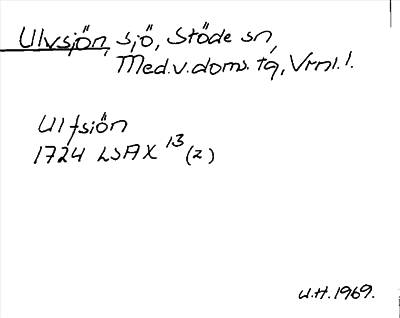 Ulvsjön, sjö, Stöde sn,
Med.v.doms. tg, Vrnl. l.
Ulfsiön
1724 LSAX 13 (2)
U.H. 1969.